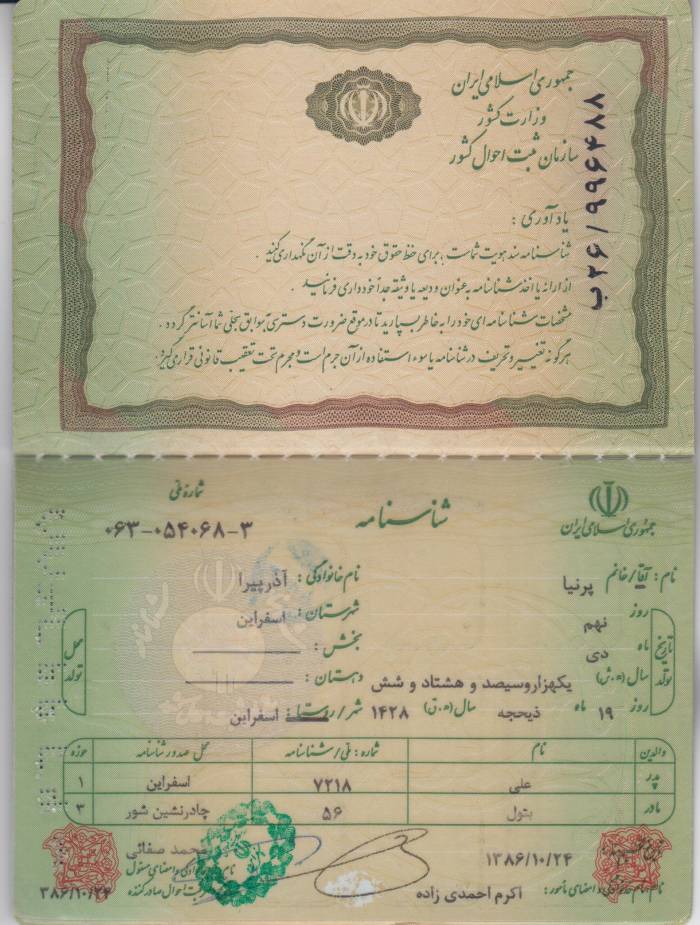 جمهوری اسلامی ایران
وزارت کشور
سازمان ثبت احوال کشور
ب۲۶/۹۹۶۴۸۷
یادآوری :
شناسنامه سند هویت شماست ، برای حفظ حقوق خود به دقت از آن نگهداری کنید .
از ارائه یا اخذ شناسنامه به عنوان ودیعه یا وثیقه جداً خودداری فرمائید .
مشخصات شناسنامه ای خود را به خاطر بسپارید تا در موقع ضرورت دسترسی به سوابق سجلی شما آسانتر گردد .
هرگونه تغییر و تحریف در شناسنامه یا سوء استفاده از آن جرم است و مجرم تحت تعقیب قانونی قرار می گیرد .
جمهوری اسلامی ایران
شناسنامه
شماره ملی
۰۶۳-۰۵۴۰۶۸-۳
نام : آقا/خانم پرنیا نام خانوادگی : آذرپیرا
تاریخ تولد
روز نهم
ماه دی
سال (ه.ش) یکهزاروسیصد و هشتاد و شش
روز ۱۹ ماه ذیحجه سال (ه.ق) ۱۴۲۸
محل تولد
شهرستان : اسفراین
بخش :
دهستان :
شهر/روستا : اسفراین
والدین نام شماره : ملی/شناسنامه محل صدور شناسنامه حوزه
پدر علی ۷۲۱۸ اسفراین ۱
مادر بتول ۵۶ چادرنشین شور ۳
۱۳۸۶/۱۰/۲۴
نام، نام خانوادگی و امضای مأمور : اکرم احمدی زاده
محمد صفائی
۱۳۸۶/۱۰/۲۴